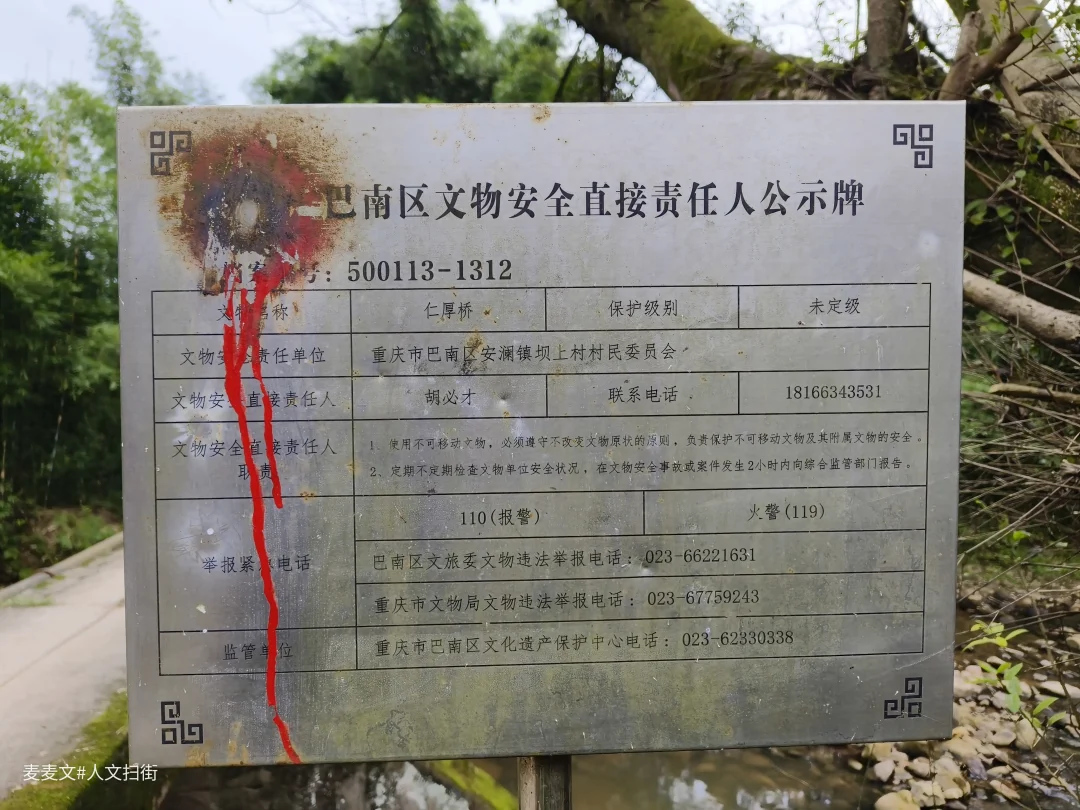 巴南区文物安全直接责任人公示牌
档案编号：500113-1312
文物名称 仁厚桥 保护级别 未定级
文物安全责任单位 重庆市巴南区安澜镇坝上村村民委员会
文物安全直接责任人 胡必才 联系电话 18166343531
文物安全直接责任人
职责
1、使用不可移动文物，必须遵守不改变文物原状的原则，负责保护不可移动文物及其附属文物的安全。
2、定期不定期检查文物单位安全状况，在文物安全事故或案件发生2小时内向综合监管部门报告。
举报紧急电话
110(报警) 火警(119)
巴南区文旅委文物违法举报电话：023-66221631
重庆市文物局文物违法举报电话：023-67759243
监管单位 重庆市巴南区文化遗产保护中心电话：023-62330338
麦麦文#人文扫街